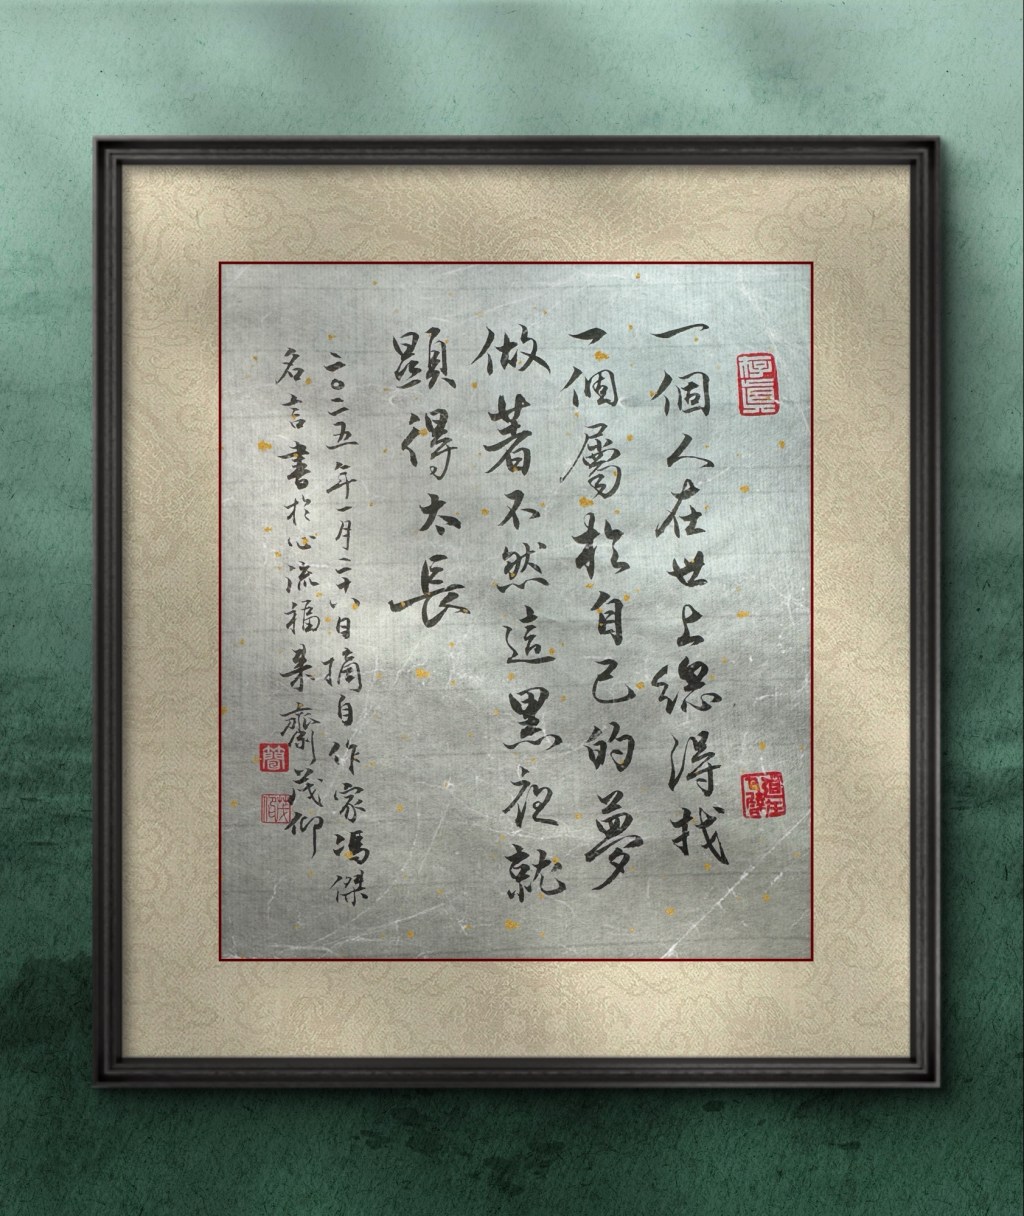 一個人在世上總得找
一個屬於自己的夢
做著不然這黑夜就
顯得太長
二〇二五年一月二十八日摘自作家馮傑
名言書於心流福來齋茂仰
存真
簡